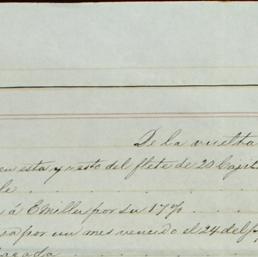 De la vuelta
en esta y resto del flete de 20 Cajas
le
á E Miller por su 17%
por un mes vencido el 24 del